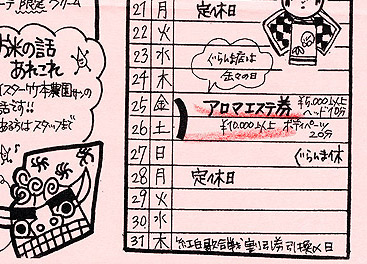 テ 限定 クリーム
お水の話
あれこれ
イスターサン本農園サンの
話です!!
あるうちはスタッフまで
21 月 定休日
22 火
23 水
ぐらんま店は
24 木
25 金 アロマエステ券 ¥5,000以上
ヘッド10分
26 土 ¥10,000以上 ボディパーツ
20分
27 日 ぐらんま休
28 月 定休日
29 火
30 水
31 木 紅白歌合戦割引券引換〆日